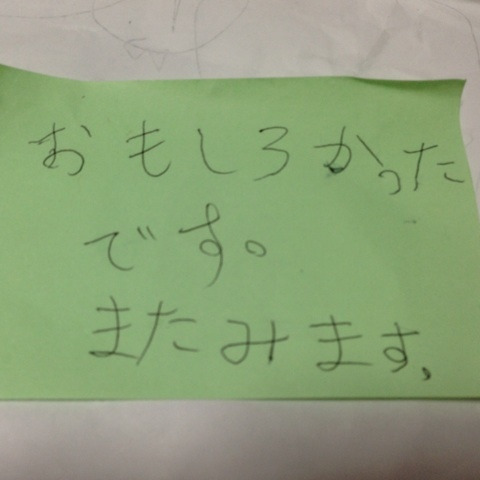 おもしろかった
です。
またみます、